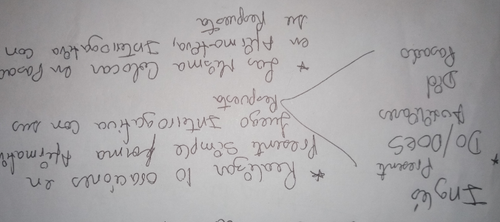 Inglés
* Presente
DO/DOES
Auxiliares
Did
Pasado
* Realizan 10 oraciones en
Presente simple forma Afirmati
luego Interrogativa con sus
Respuesta
* Las Misma Colocan en Pasad
en Afirmativa, Interrogativa con
su Respuesta